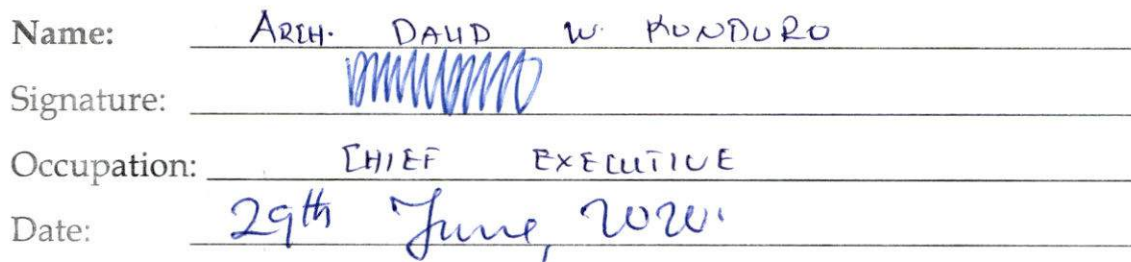 Name: ARCH. DAUD W. KUNDURO
Signature:
Occupation: CHIEF EXECUTIVE
Date: 29th June, 2020.